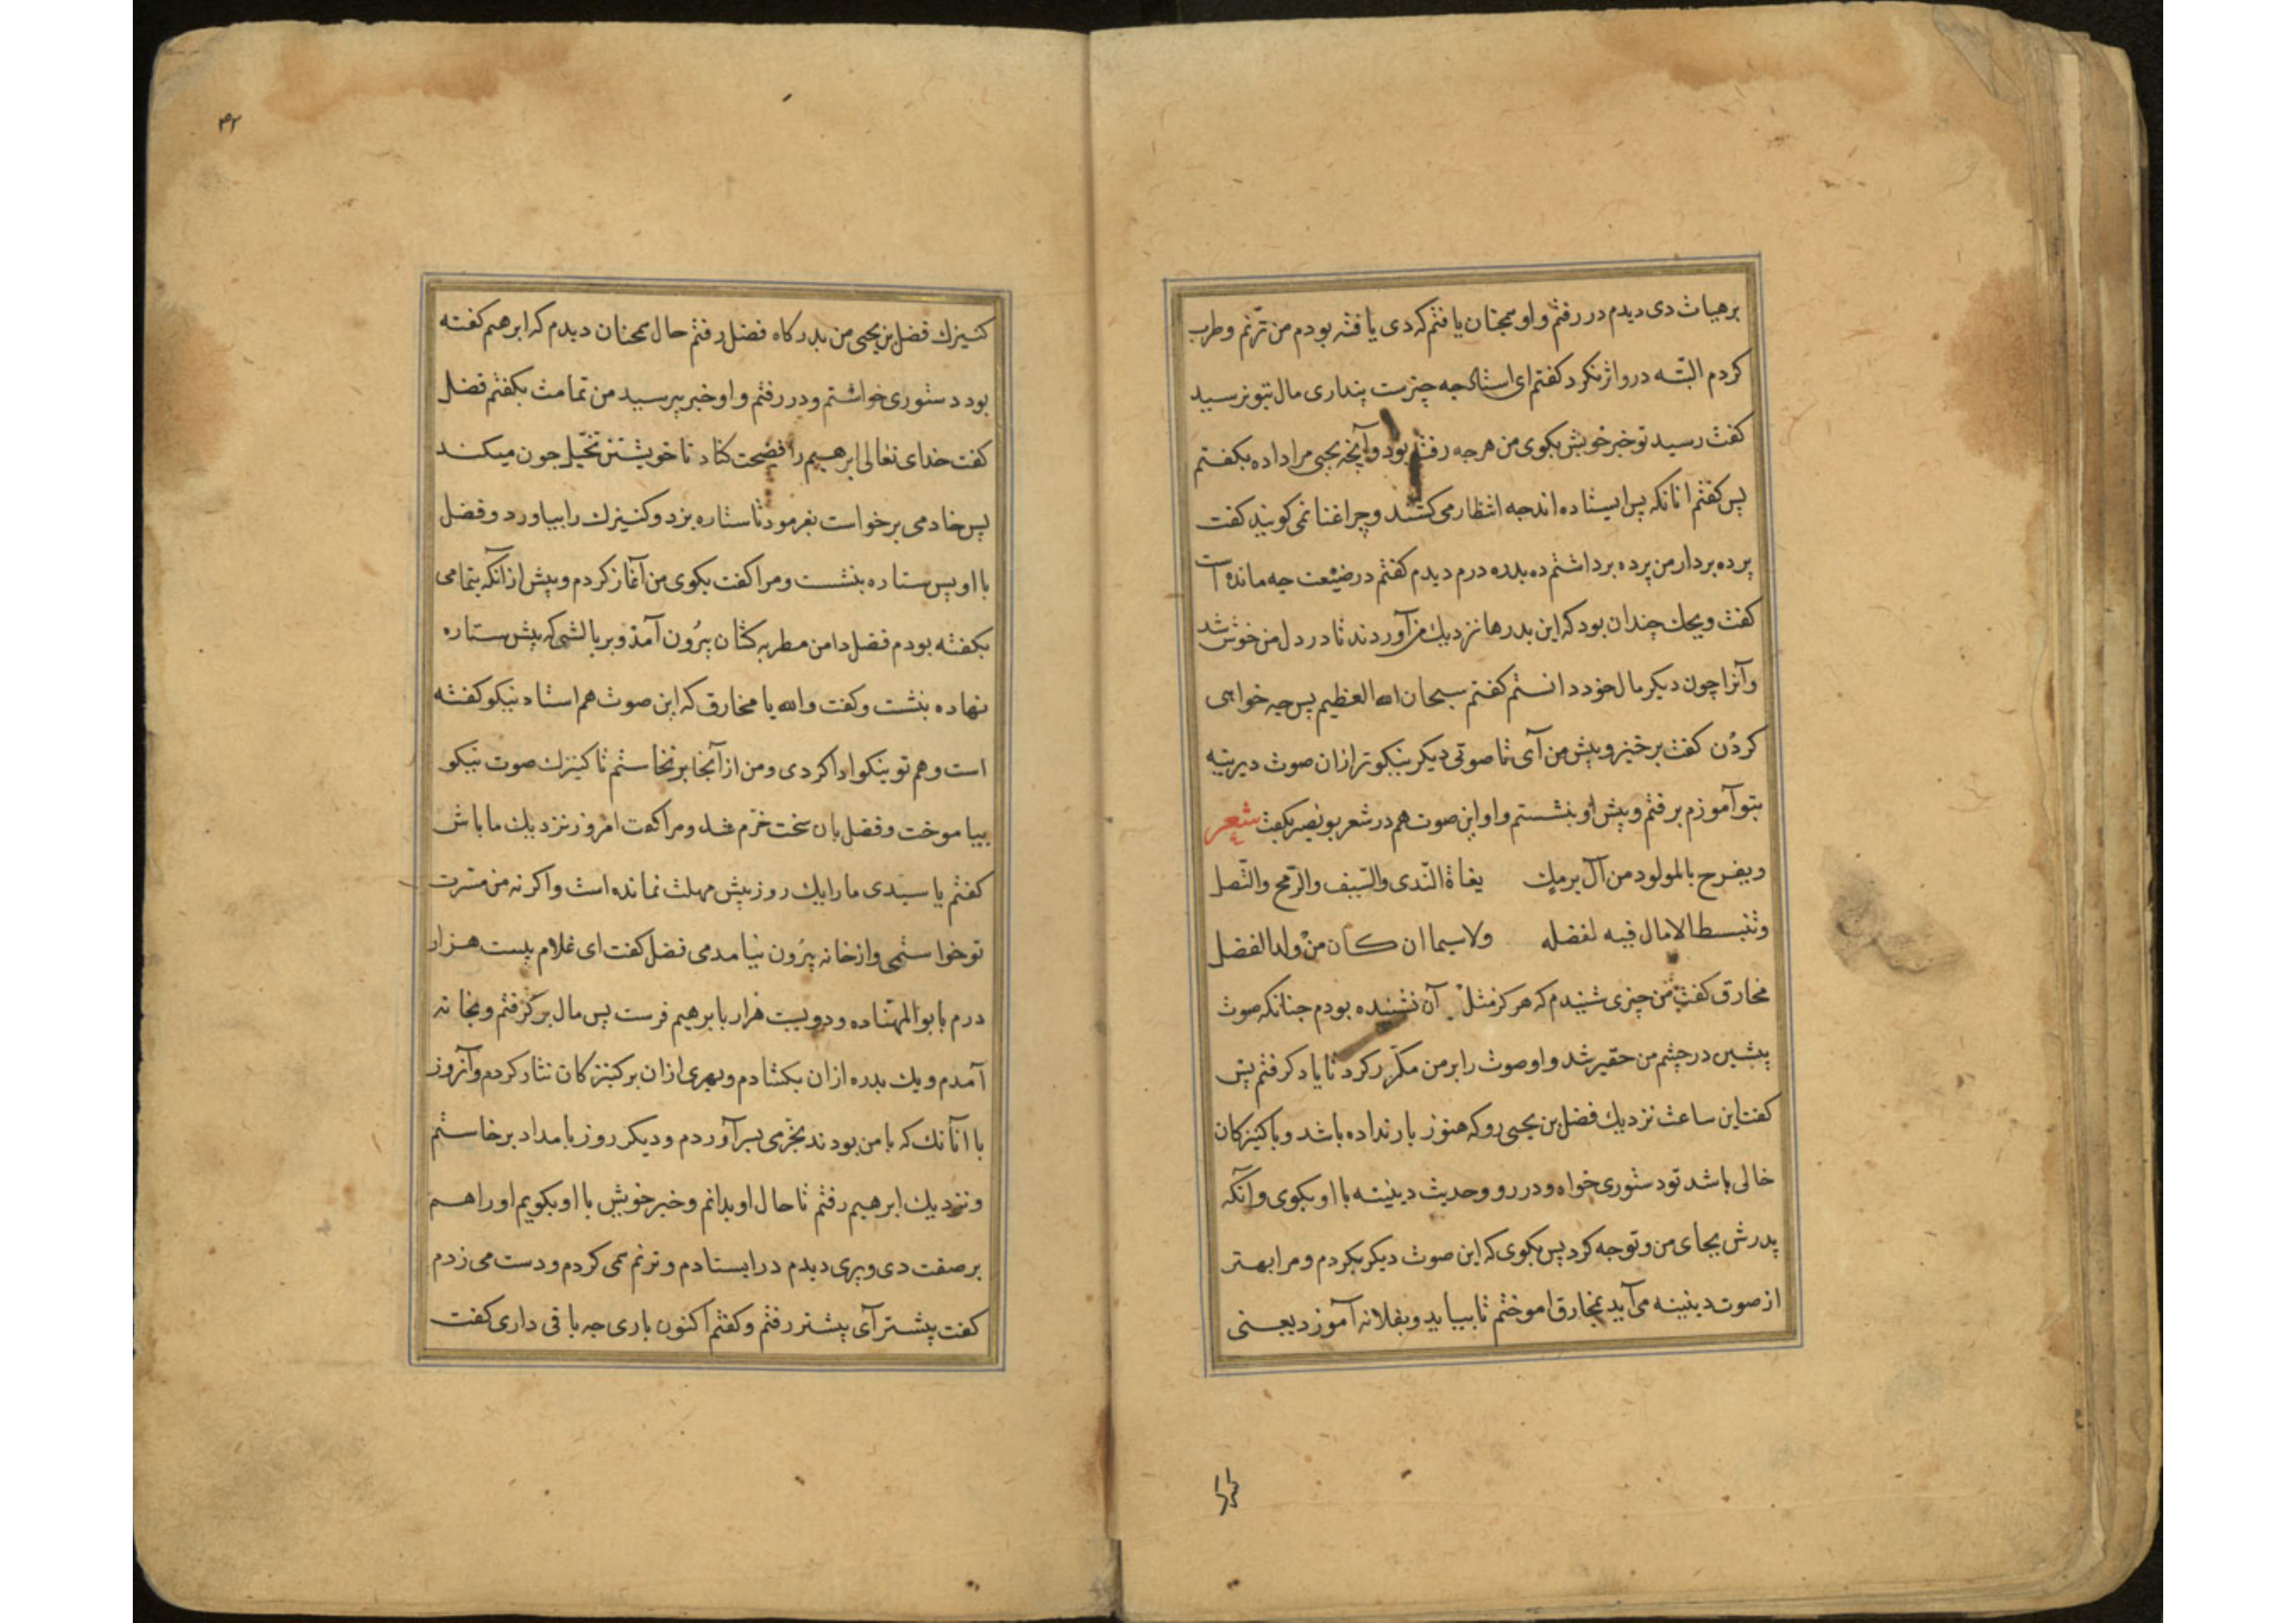 برهیاث دی دیدم در رفتم و او همچنان یافتم که دی یافته بودم من ترنم و طرب
کردم البته در و اثر نکرد کفتم ای استاد جه چیزست پنداری مال بتو نرسید
کفت رسید تو خبر خویش بکوی من هرجه رفته بود و آنچه یحیی مرا داده بکفتم
پس کفتم انانکه پس ایستاده اند جه انتظار می کشند و چرا غنا نمی کویند کفت
پرده بردار من پرده برداشتم ده بدره درم دیدم کفتم در ضیعت چه مانده است
کفت ویحك چندان بود که این بدرها نزدیك من آوردند تا در دل من خوش شد
و آنرا چون دیکر مال خود دانستم کفتم سبحان الله العظیم پس چه خواهی
کردن کفت برخیز و پیش من آی تا صوتی دیکر نیکوتر ازان صوت دیرینه
بتو آموزم برفتم و پیش او بنشستم و او این صوت هم در شعر بونصر بکفت شعر
ویفرح بالمولود من آل برمك یغاة الندی والسیف والرمح والنصل
وتنبسط الامال فیه لفضله ولاسیما ان كان من ولد الفضل
مخارق کفت من چیزی شنیدم که هرکز مثل آن نشنیده بودم جنانکه صوت
پیشین در چشم من حقیر شد و او صوت را بر من مکرر کرد تا یاد کرفتم پس
کفت این ساعت نزدیك فضل بن یحیی رو که هنوز بار نداده باشد و با کنیزکان
خالی باشد تو دستوری خواه و در رو و حدیث دینینه با او بکوی و آنکه
پدرش بجای من و تو جه کرد پس بکوی که این صوت دیکر بکردم و مرا بهتر
از صوت دینینه می آید بمخارق اموختم تا بیاید و بفلانه آموزد یعنی
لللا
۴۲
کنیزك فضل بن یحیی من بدرکاه فضل رفتم حال همچنان دیدم که ابرهیم کفته
بود دستوری خواستم و در رفتم و او خبر بپرسید من تمامت بکفتم فضل
کفت خدای تعالی ابرهیم را فضیحت کناد تا خویشتن تخیل جون میکند
پس خادمی برخواست بفرمود تا ستاره بزد و کنیزك را بیاورد و فضل
با او پس ستاره بنشست و مرا کفت بکوی من آغاز کردم و پیش ازانکه بتمامی
بکفته بودم فضل دامن مطربه کشان بیرون آمد و بر بالشی که پیش ستاره
نهاده بنشت و کفت والله یا مخارق که این صوت هم استاد نیکو کفته
است و هم تو نیکو ادا کردی و من از آنجا برنخاستم تا کنیزك صوت نیکو
بیاموخت و فضل بان سخت خرم شد و مرا کفت امروز نزدیك ما باش
کفتم یا سیدی ما را یك روز بیش مهلت نمانده است و اکر نه من مسرت
تو خواستمی و از خانه بیرون نیامدمی فضل کفت ای غلام بیست هزار
درم بابوالمهنا ده و دویست هزار بابرهیم فرست پس مال برکرفتم و بخانه
آمدم و یك بدره ازان بکشادم و بهری ازان بر کنیزکان نثار کردم و آنروز
با انانك که با من بودند بخرمی بسر آوردم و دیکر روز بامداد برخاستم
و نزدیك ابرهیم رفتم تا حال او بدانم و خبر خویش با او بکویم او را هم
بر صفت دی و پری دیدم در ایستادم و ترنم می کردم و دست می زدم
کفت پیشتر آی پیشتر رفتم و کفتم اکنون باری جه باقی داری کفت